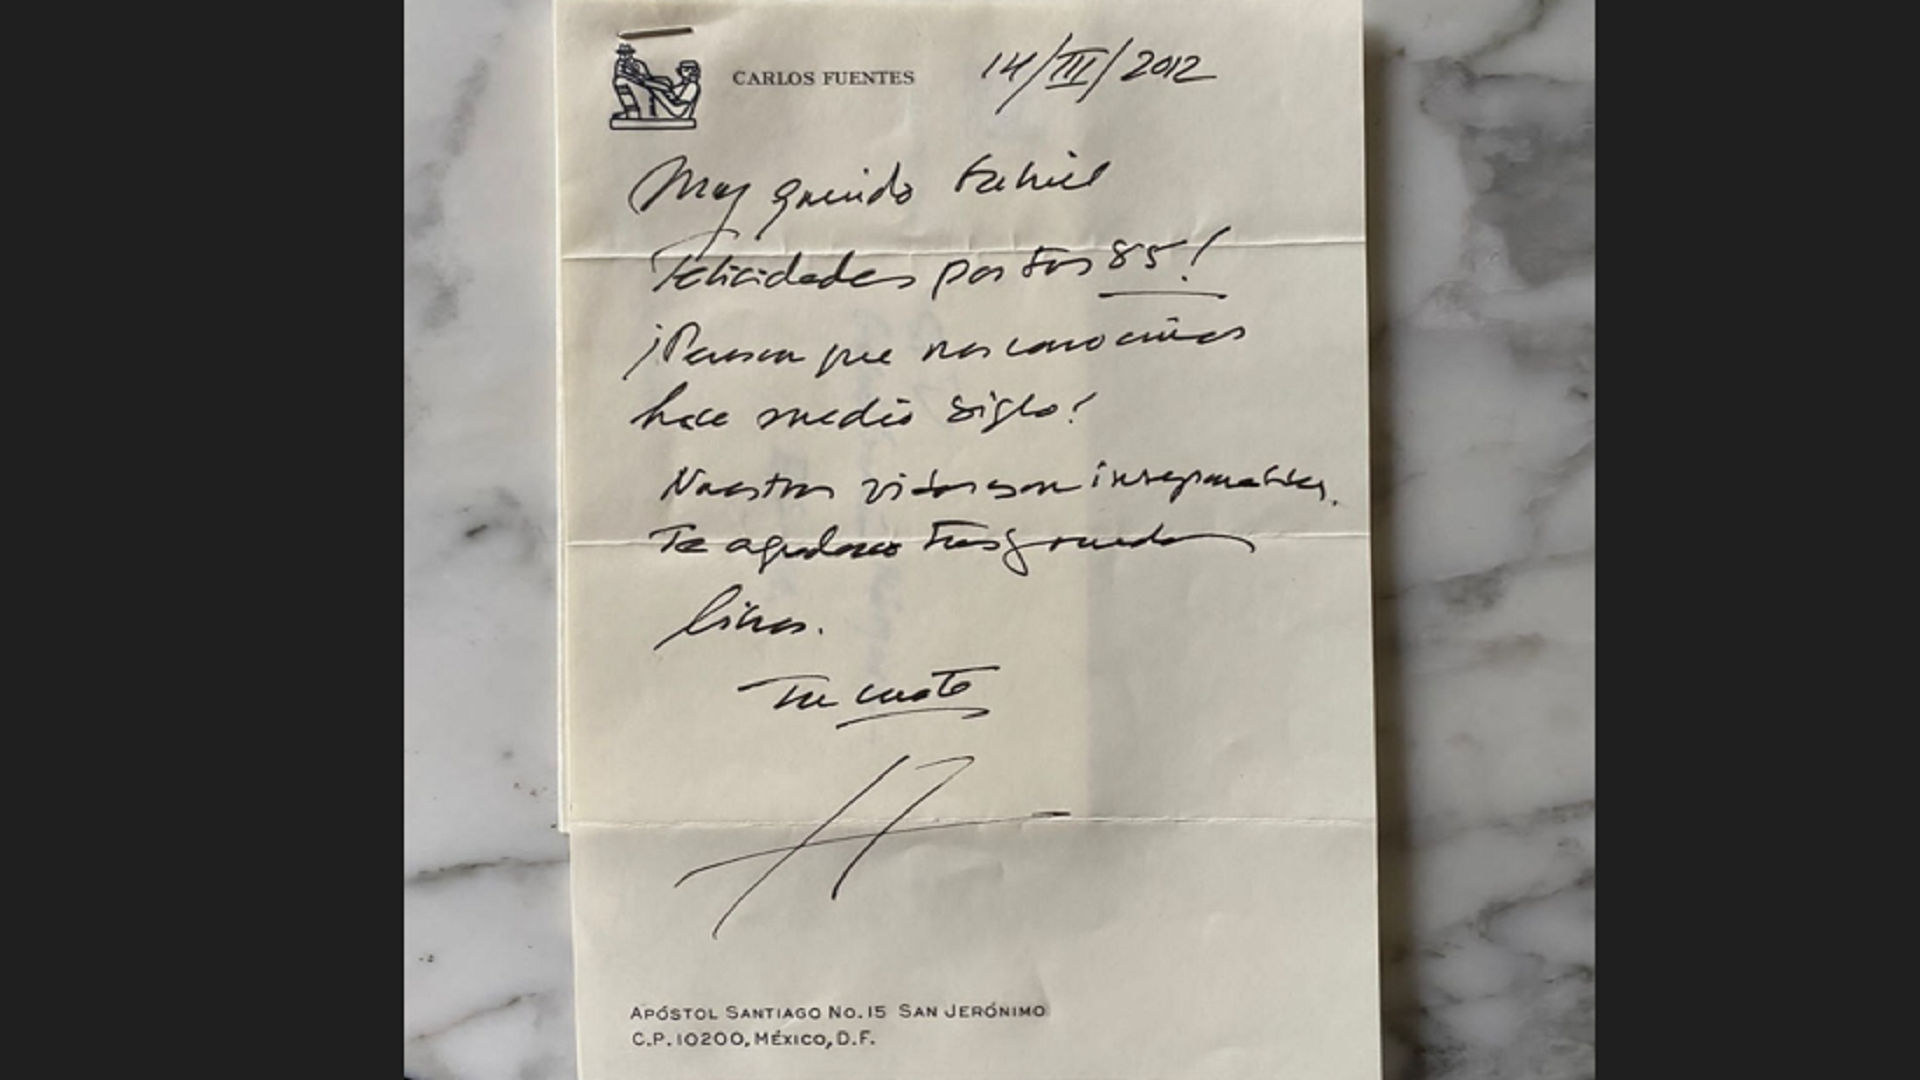 CARLOS FUENTES
14/III/2012
Muy querido Gabriel
Felicidades por tus 85!
¡Pensar que nos conocimos
hace medio siglo!
Nuestras vidas son inseparables.
Te agradezco tus grandes
libros.
Tu cuate
APÓSTOL SANTIAGO No. 15 SAN JERÓNIMO
C.P. 10200, MÉXICO, D.F.